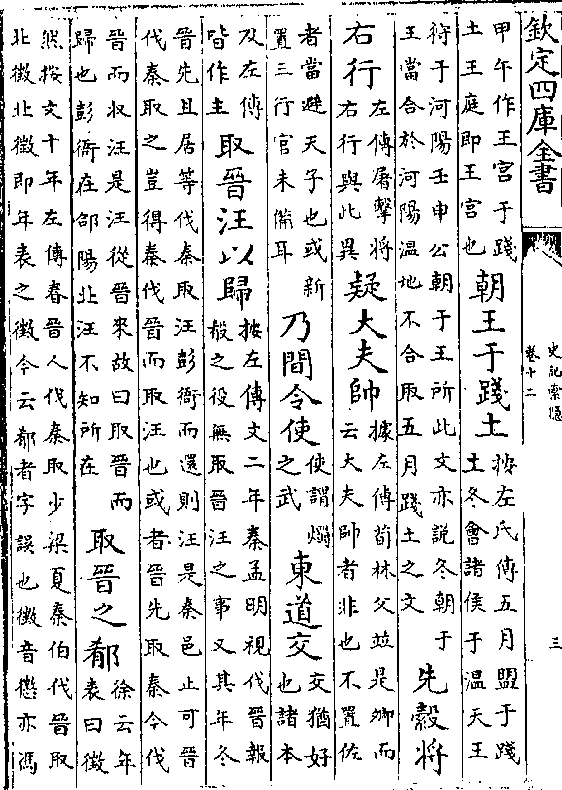 欽定四庫全書
史記索隱
卷十二
三
甲午作王宮于踐
土王庭即王宮也
朝王于踐土
按左氏傳五月盟于踐
土冬會諸侯于溫天王
狩于河陽壬申公朝于王所此文亦說冬朝于
王當合於河陽溫地不合取五月踐土之文
先縠將
右行
左傳屠擊將
右行與此異
疑大夫帥
據左傳荀林父並是卿而
云大夫帥者非也不置佐
者當避天子也或新
置三行官未備耳
乃間令使
使謂燭
之武
東道交
交猶好
也諸本
及左傳
皆作主
取晉汪以歸
按左傳文二年秦孟明視伐晉報
殽之役無取晉汪之事又其年冬
晉先且居等伐秦取汪彭衙而還則汪是秦邑止可晉
伐秦取之豈得秦伐晉而取汪也或者晉先取秦今伐
晉而收汪是汪從晉來故曰取晉而
歸也彭衙在郃陽北汪不知所在
取晉之郩
徐云年
表曰徵
然按文十年左傳春晉人伐秦取少梁夏秦伯伐晉取
北徵北徵即年表之徵今云郩者字誤也徵音懲亦馮